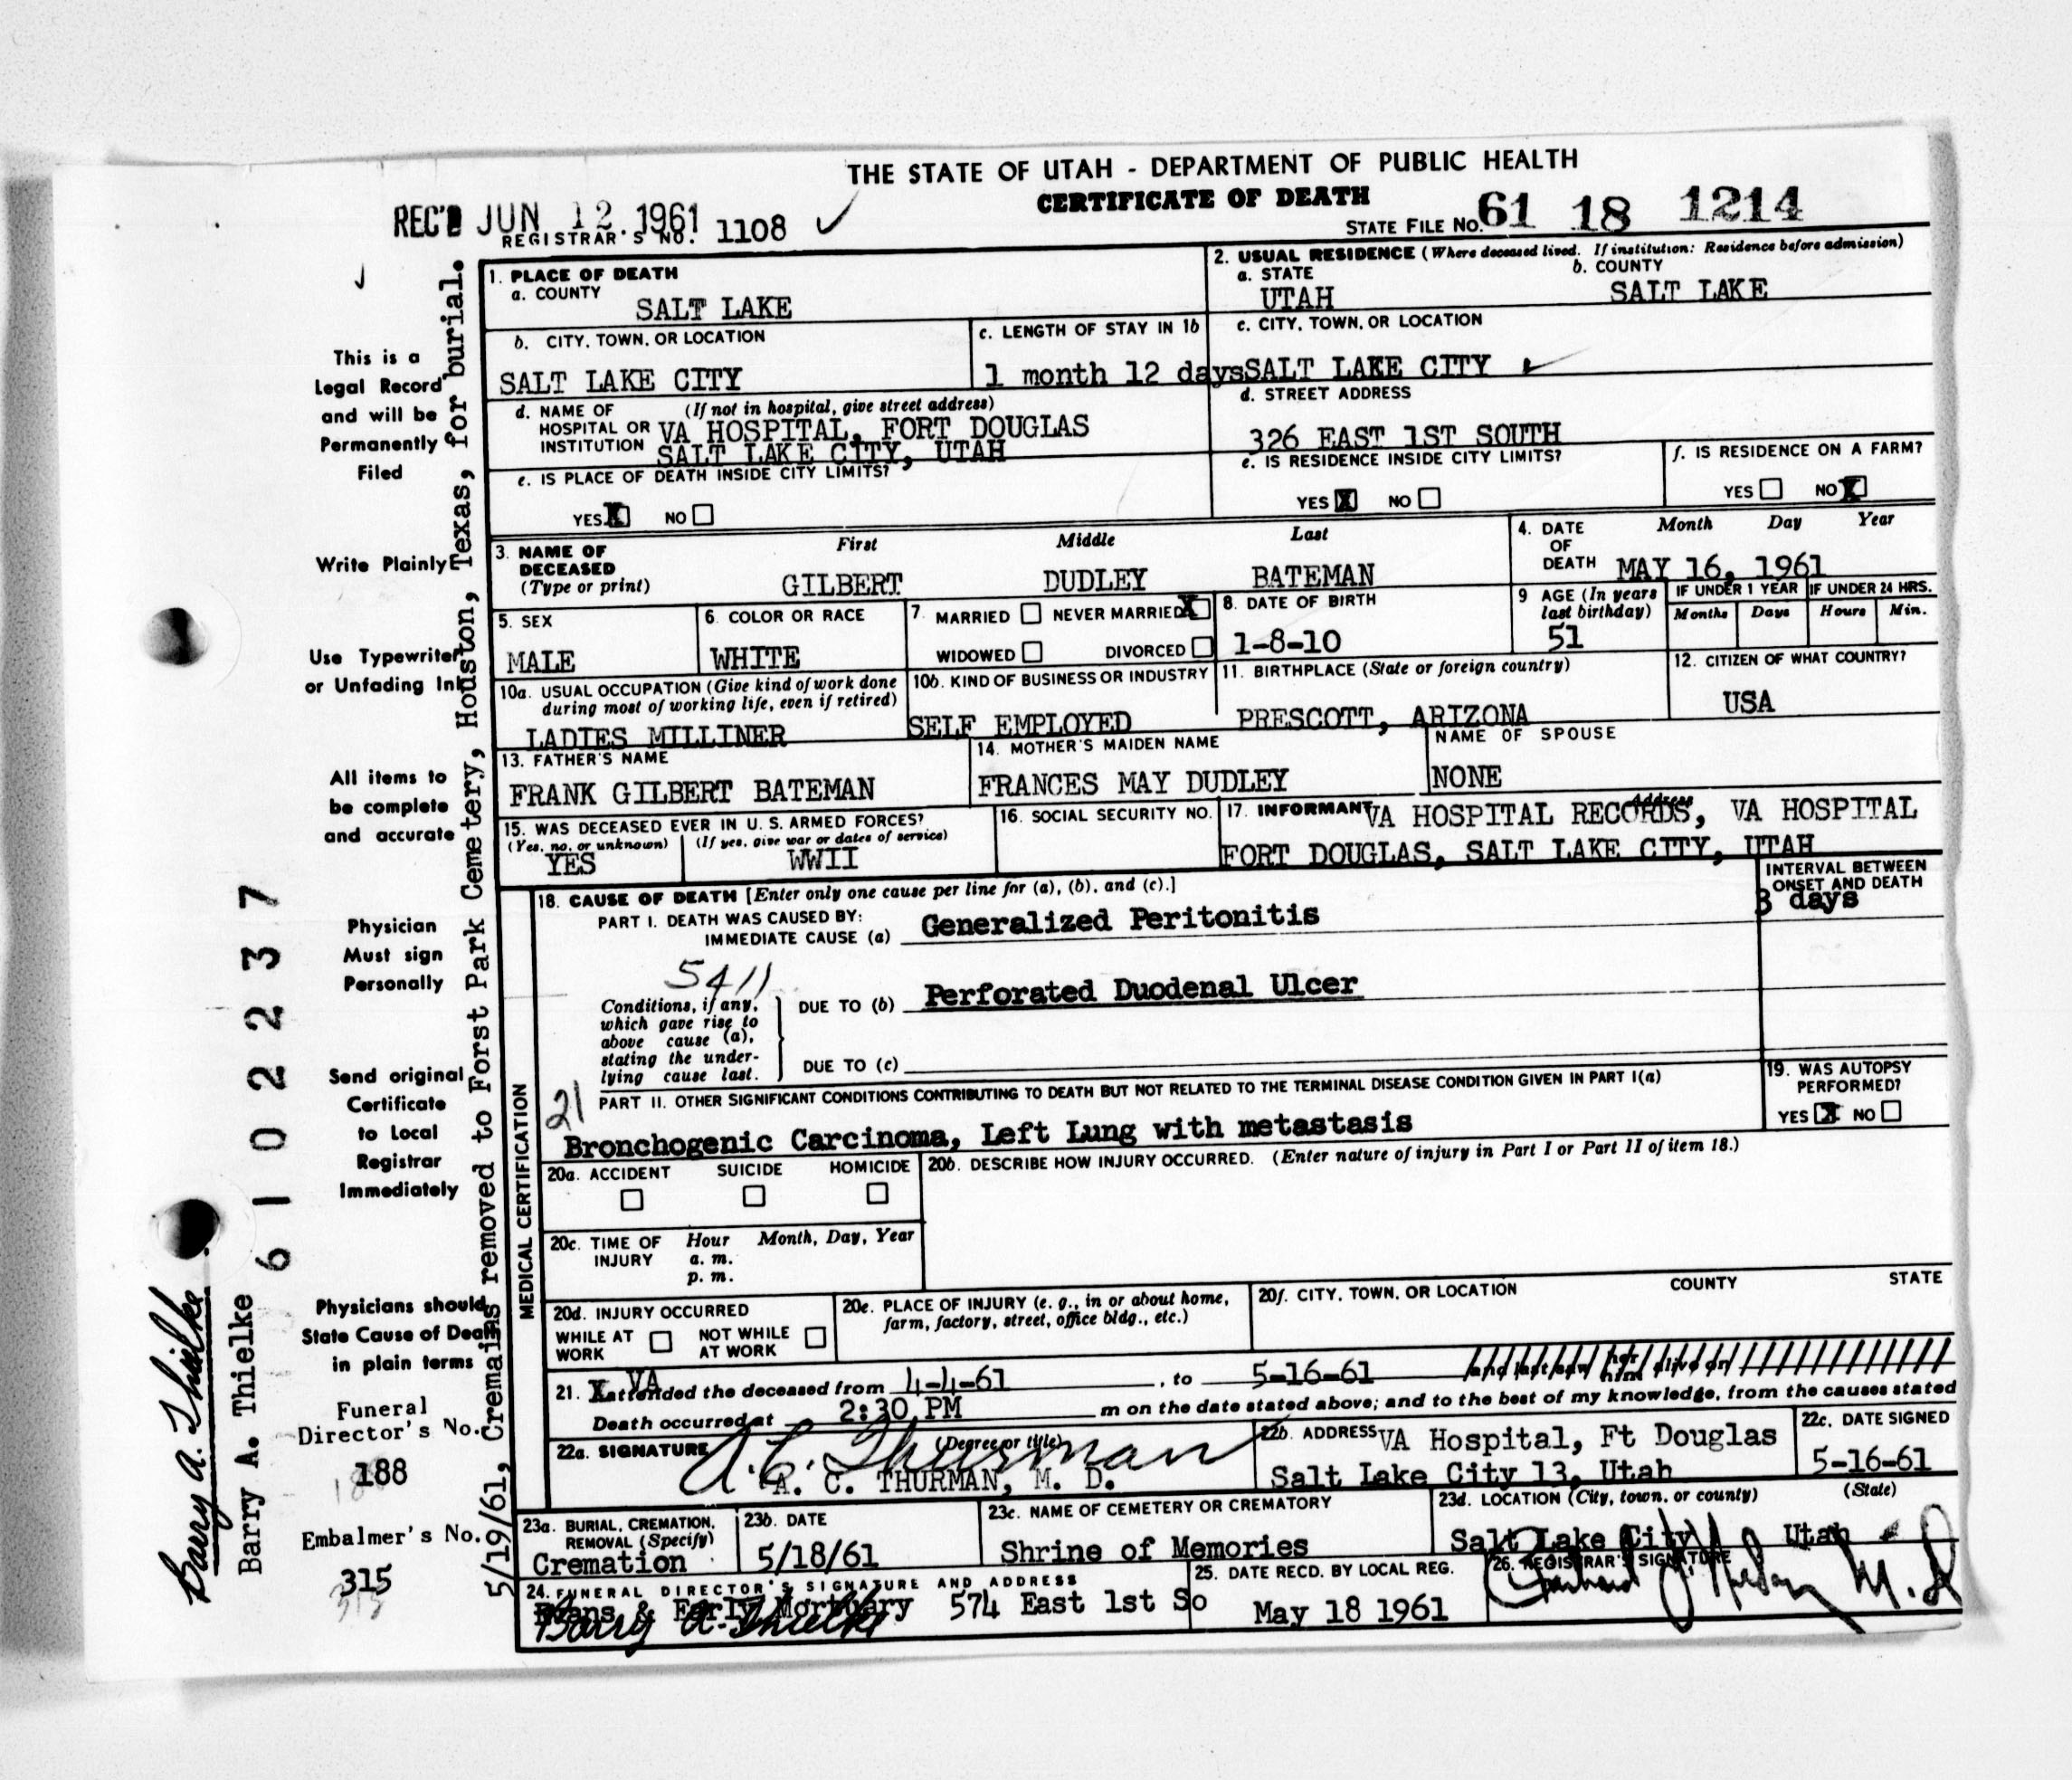 THE STATE OF UTAH - DEPARTMENT OF PUBLIC HEALTH
CERTIFICATE OF DEATH
REC'D JUN 12. 1961
REGISTRAR'S NO. 1108
STATE FILE NO. 61 18 1214
1. PLACE OF DEATH
a. COUNTY
SALT LAKE
2. USUAL RESIDENCE (Where deceased lived. If institution: Residence before admission)
a. STATE
UTAH
b. COUNTY
SALT LAKE
b. CITY, TOWN, OR LOCATION
SALT LAKE CITY
c. LENGTH OF STAY IN 1b
1 month 12 days
c. CITY, TOWN, OR LOCATION
SALT LAKE CITY
d. NAME OF HOSPITAL OR INSTITUTION
(If not in hospital, give street address)
VA HOSPITAL, FORT DOUGLAS
SALT LAKE CITY, UTAH
d. STREET ADDRESS
326 EAST 1ST SOUTH
e. IS PLACE OF DEATH INSIDE CITY LIMITS?
YES X NO
e. IS RESIDENCE INSIDE CITY LIMITS?
YES X NO
f. IS RESIDENCE ON A FARM?
YES NO X
3. NAME OF DECEASED
(Type or print)
First Middle Last
GILBERT DUDLEY BATEMAN
4. DATE OF DEATH
Month Day Year
MAY 16, 1961
5. SEX
MALE
6. COLOR OR RACE
WHITE
7. MARRIED NEVER MARRIED X
WIDOWED DIVORCED
8. DATE OF BIRTH
1-8-10
9 AGE (In years last birthday)
51
IF UNDER 1 YEAR
Months Days
IF UNDER 24 HRS.
Hours Min.
10a. USUAL OCCUPATION (Give kind of work done
during most of working life, even if retired)
LADIES MILLINER
10b. KIND OF BUSINESS OR INDUSTRY
SELF EMPLOYED
11. BIRTHPLACE (State or foreign country)
PRESCOTT, ARIZONA
12. CITIZEN OF WHAT COUNTRY?
USA
13. FATHER'S NAME
FRANK GILBERT BATEMAN
14. MOTHER'S MAIDEN NAME
FRANCES MAY DUDLEY
NAME OF SPOUSE
NONE
15. WAS DECEASED EVER IN U. S. ARMED FORCES?
(Yes, no, or unknown) (If yes, give war or dates of service)
YES WWII
16. SOCIAL SECURITY NO.
17. INFORMANT Address
VA HOSPITAL RECORDS, VA HOSPITAL
FORT DOUGLAS, SALT LAKE CITY, UTAH
MEDICAL CERTIFICATION
18. CAUSE OF DEATH [Enter only one cause per line for (a), (b), and (c).]
INTERVAL BETWEEN ONSET AND DEATH
PART I. DEATH WAS CAUSED BY:
IMMEDIATE CAUSE (a) Generalized Peritonitis
3 days
5411
Conditions, if any,
which gave rise to
above cause (a),
stating the under-
lying cause last.
DUE TO (b) Perforated Duodenal Ulcer
DUE TO (c)
21
PART II. OTHER SIGNIFICANT CONDITIONS CONTRIBUTING TO DEATH BUT NOT RELATED TO THE TERMINAL DISEASE CONDITION GIVEN IN PART I(a)
Bronchogenic Carcinoma, Left Lung with metastasis
19. WAS AUTOPSY PERFORMED?
YES X NO
20a. ACCIDENT SUICIDE HOMICIDE
20b. DESCRIBE HOW INJURY OCCURRED. (Enter nature of injury in Part I or Part II of item 18.)
20c. TIME OF INJURY
Hour Month, Day, Year
a. m.
p. m.
20d. INJURY OCCURRED
WHILE AT WORK NOT WHILE AT WORK
20e. PLACE OF INJURY (e. g., in or about home,
farm, factory, street, office bldg., etc.)
20f. CITY, TOWN, OR LOCATION COUNTY STATE
21. I VA attended the deceased from 4-4-61, to 5-16-61 and last saw her him alive on
Death occurred at 2:30 PM m on the date stated above; and to the best of my knowledge, from the causes stated
22a. SIGNATURE (Degree or title)
A. C. Thurman
A. C. THURMAN, M. D.
22b. ADDRESS
VA Hospital, Ft Douglas
Salt Lake City 13, Utah
22c. DATE SIGNED
5-16-61
23a. BURIAL, CREMATION, REMOVAL (Specify)
Cremation
23b. DATE
5/18/61
23c. NAME OF CEMETERY OR CREMATORY
Shrine of Memories
23d. LOCATION (City, town, or county) (State)
Salt Lake City Utah
24. FUNERAL DIRECTOR'S SIGNATURE AND ADDRESS
Evans & Early Mortuary 574 East 1st So
Barry A. Thielke
25. DATE RECD. BY LOCAL REG.
May 18 1961
26. REGISTRAR'S SIGNATURE
This is a
Legal Record
and will be
Permanently
Filed
Write Plainly
Use Typewriter
or Unfading Ink
All items to
be complete
and accurate
Physician
Must sign
Personally
Send original
Certificate
to Local
Registrar
Immediately
Physicians should
State Cause of Death
in plain terms
Funeral
Director's No.
188
Embalmer's No.
315
5/19/61, Cremains removed to Forst Park Cemetery, Houston, Texas, for burial.
6102237
Barry A. Thielke
Barry A. Thielke